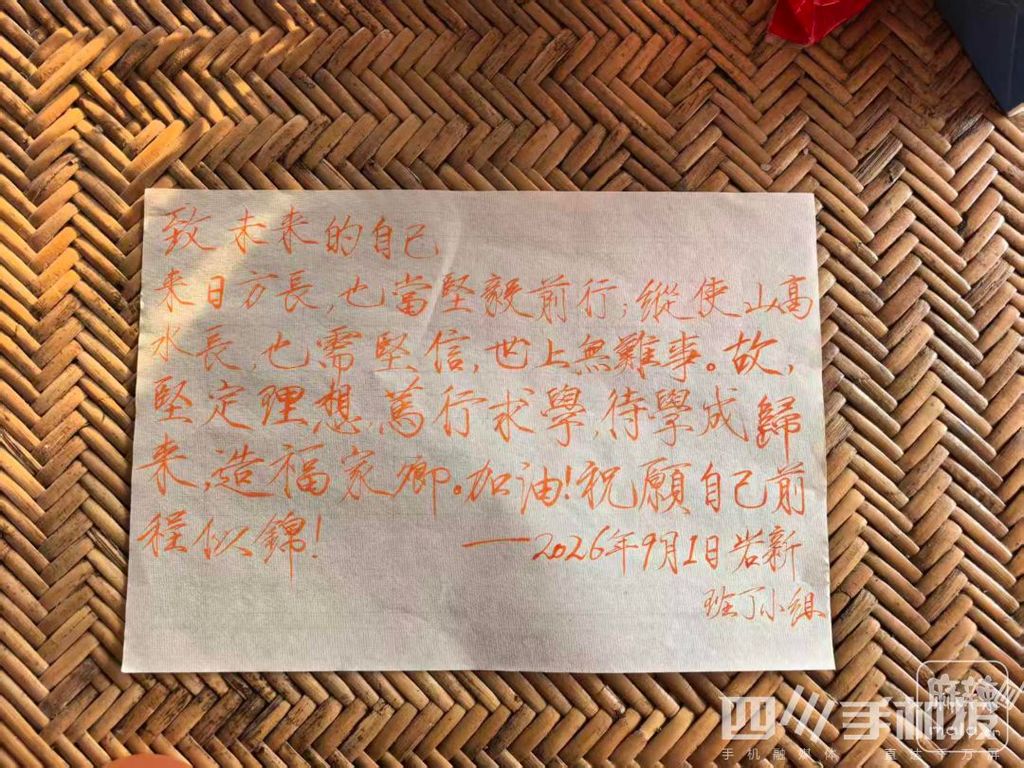 致未来的自己
来日方長，也當堅毅前行；縱使山高
水長，也需堅信，世上無難事。故，
堅定理想，篤行求學，待學成歸
来，造福家鄉。加油！祝願自己前
程似錦！
——2026年9月1日岩新
班丁小組
四川手机报
手机融媒体 直达千万屏
麻辣
mala.cn